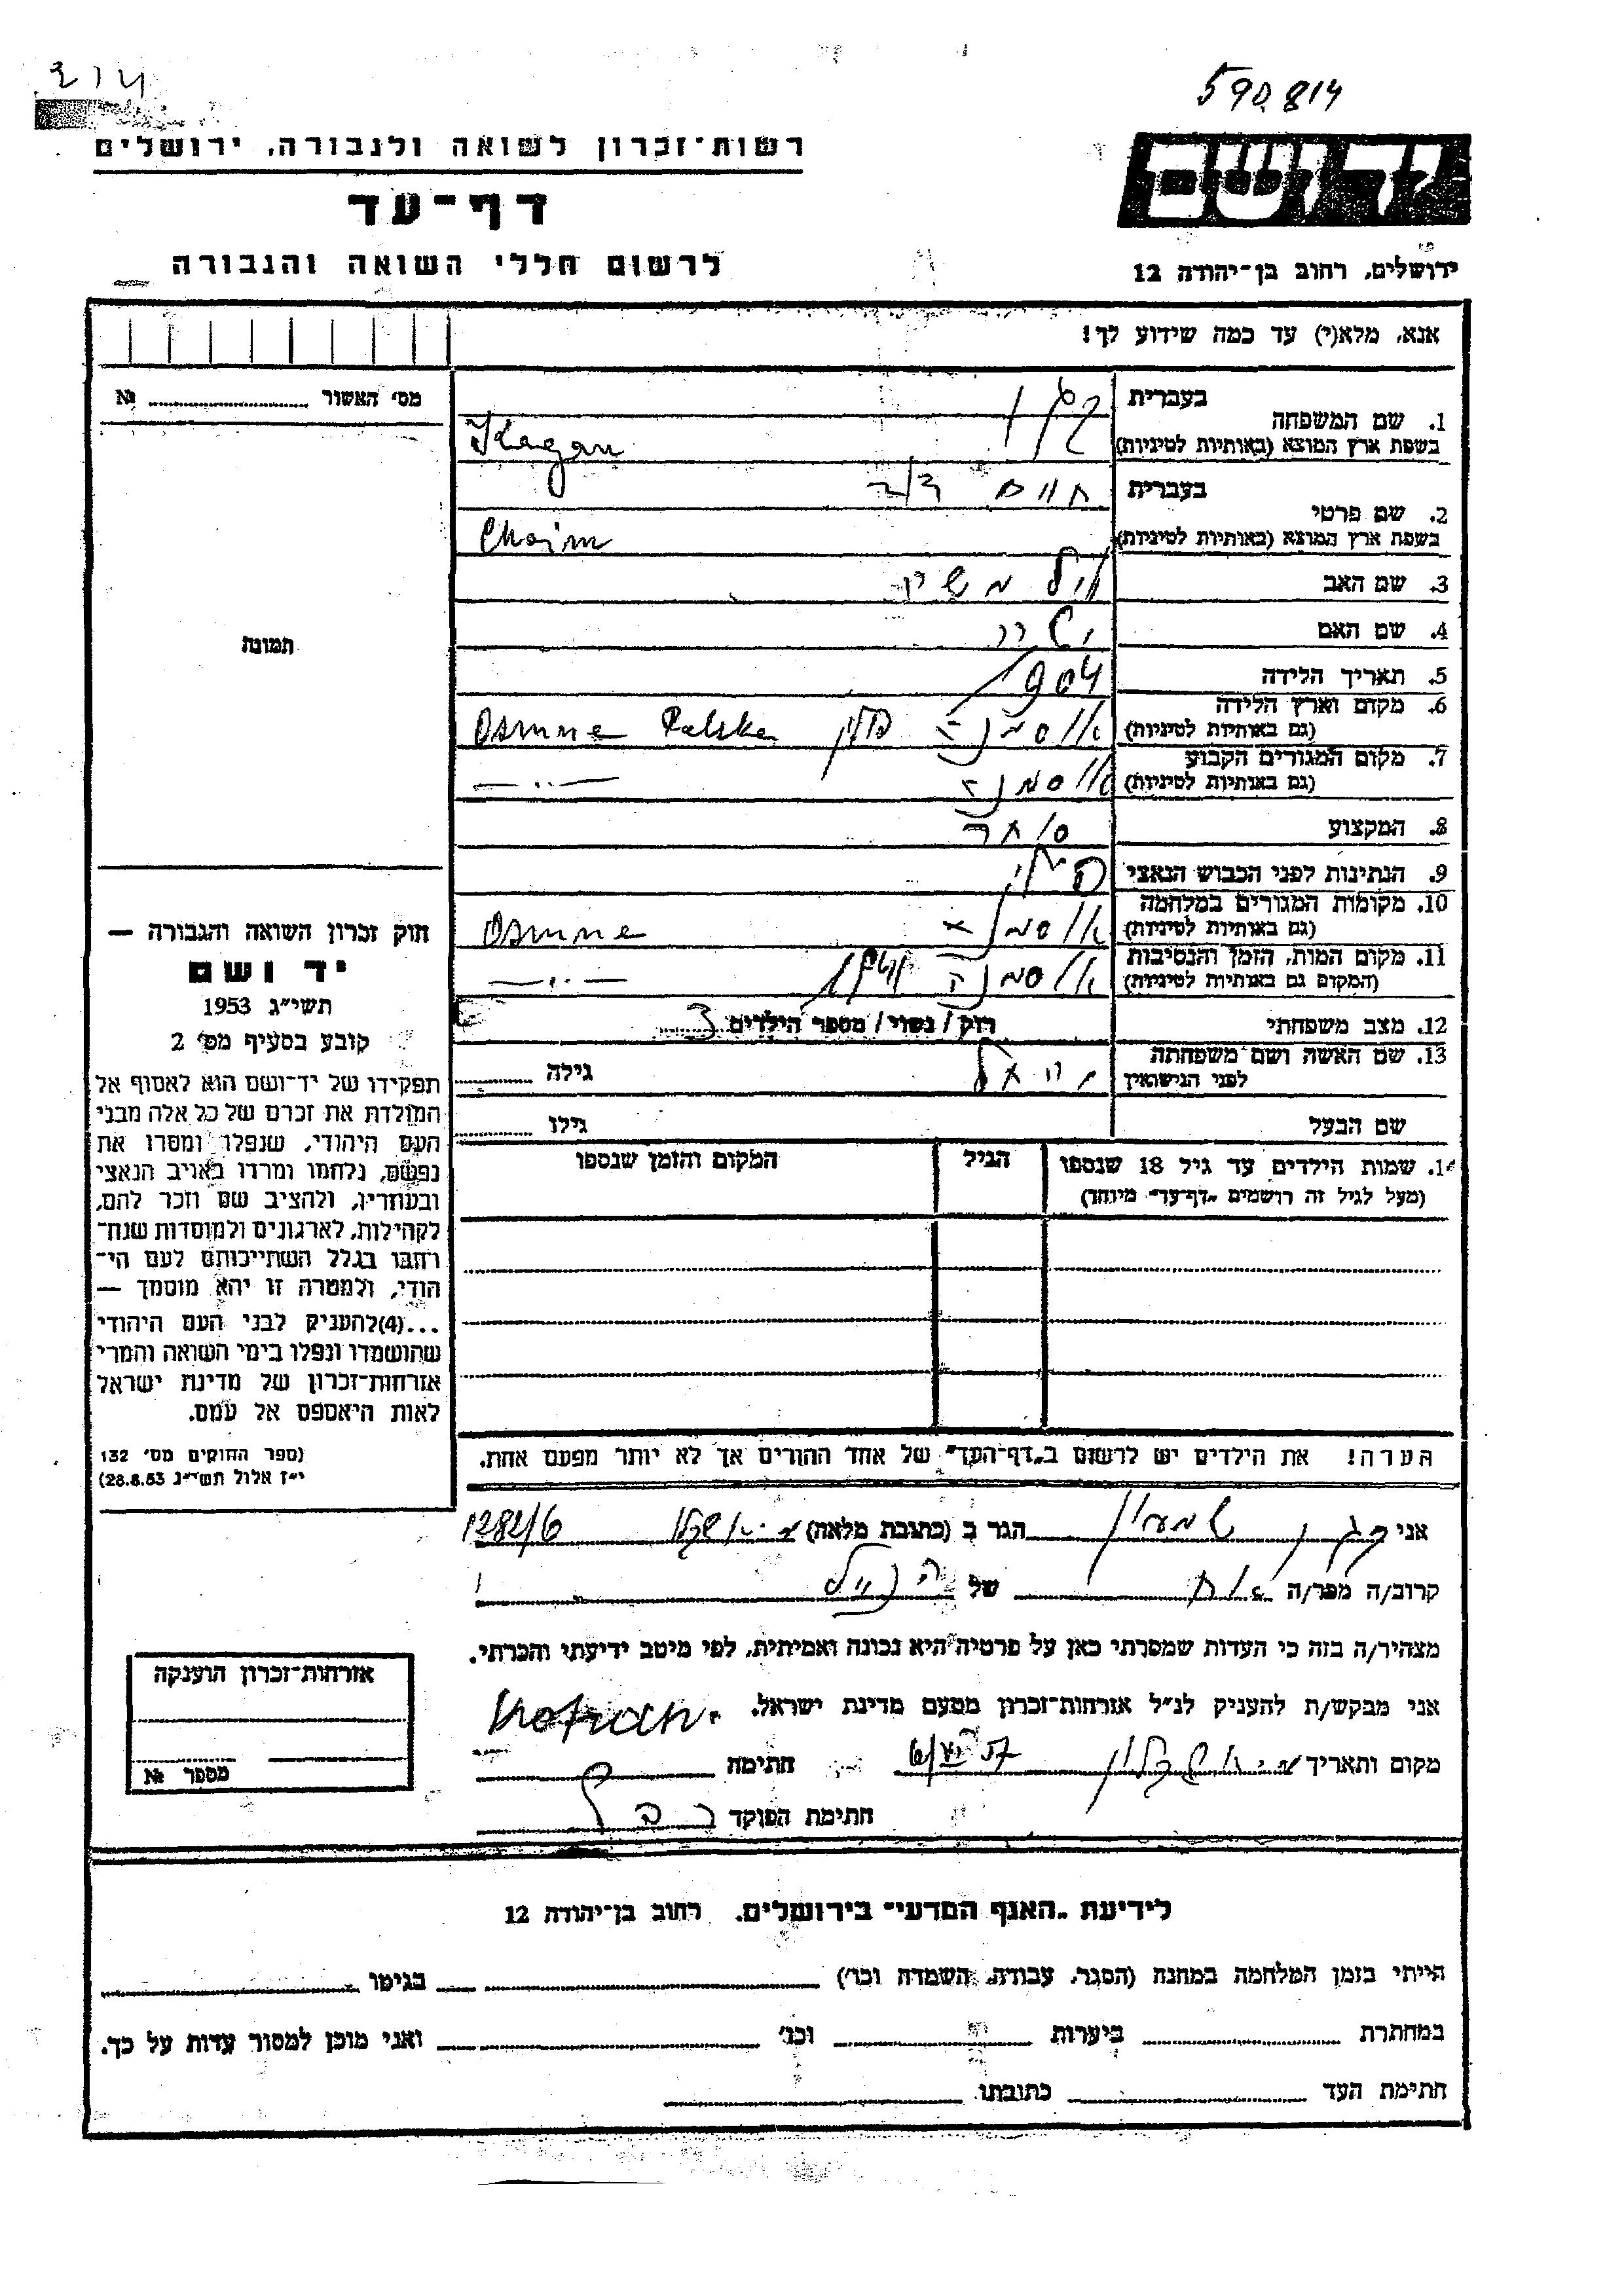 590.814
רשות־זכרון לשואה ולגבורה, ירושלים
דף־עד
לרשום חללי השואה והגבורה
ירושלים, רחוב בן־יהודה 12
אנא, מלא(י) עד כמה שידוע לך!
מס׳ האשור № 
1. שם המשפחה בעברית
בשפת ארץ המוצא (באותיות לטיניות) Kagan
2. שם פרטי בעברית חיים
בשפת ארץ המוצא (באותיות לטיניות) Chaim
3. שם האב
4. שם האם
5. תאריך הלידה 1904
6. מקום וארץ הלידה
(גם באותיות לטיניות) פולין Polska
7. מקום המגורים הקבוע
(גם באותיות לטיניות) —〃—
8. המקצוע סוחר
9. הנתינות לפני הכבוש הנאצי
10. מקומות המגורים במלחמה
(גם באותיות לטיניות)
11. מקום המות, הזמן והנסיבות
(המקום גם באותיות לטיניות) —〃—
12. מצב משפחתי רווק / נשוי / מספר הילדים 3
13. שם האשה ושם משפחתה
לפני הנישואין גילה
שם הבעל גילו
14. שמות הילדים עד גיל 18 שנספו הגיל המקום והזמן שנספו
(מעל לגיל זה רושמים „דף־עד״ מיוחד)
הערה! את הילדים יש לרשום ב„דף־העד״ של אחד ההורים אך לא יותר מפעם אחת.
תמונה
חוק זכרון השואה והגבורה —
יד ושם
תשי״ג 1953
קובע בסעיף מס׳ 2
תפקידו של יד־ושם הוא לאסוף אל
המולדת את זכרם של כל אלה מבני
העם היהודי, שנפלו ומסרו את
נפשם, נלחמו ומרדו באויב הנאצי
ובעוזריו, ולהציב שם וזכר להם,
לקהילות, לארגונים ולמוסדות שנח־
רבו בגלל השתייכותם לעם הי־
הודי, ולמטרה זו יהא מוסמך —
...(4)להעניק לבני העם היהודי
שהושמדו ונפלו בימי השואה והמרי
אזרחות־זכרון של מדינת ישראל
לאות היאספם אל עמם.
(ספר החוקים מס׳ 132
י״ז אלול תשי״ג 28.8.53)
אני כגן שמעון הגר ב (כתובת מלאה) 1282/6
קרוב/ה מפר/ה אח של הנ״ל
מצהיר/ה בזה כי העדות שמסרתי כאן על פרטיה היא נכונה ואמיתית, לפי מיטב ידיעתי והכרתי.
אני מבקש/ת להעניק לנ״ל אזרחות־זכרון מטעם מדינת ישראל.
מקום ותאריך חתימה
חתימת הפוקד
אזרחות־זכרון הוענקה
מספר №
לידיעת „האגף המדעי״ בירושלים, רחוב בן־יהודה 12
הייתי בזמן המלחמה במחנה (הסגר, עבודה, השמדה וכו׳) בגיטו
במחתרת ביערות וכו׳ ואני מוכן למסור עדות על כך.
חתימת העד כתובתו